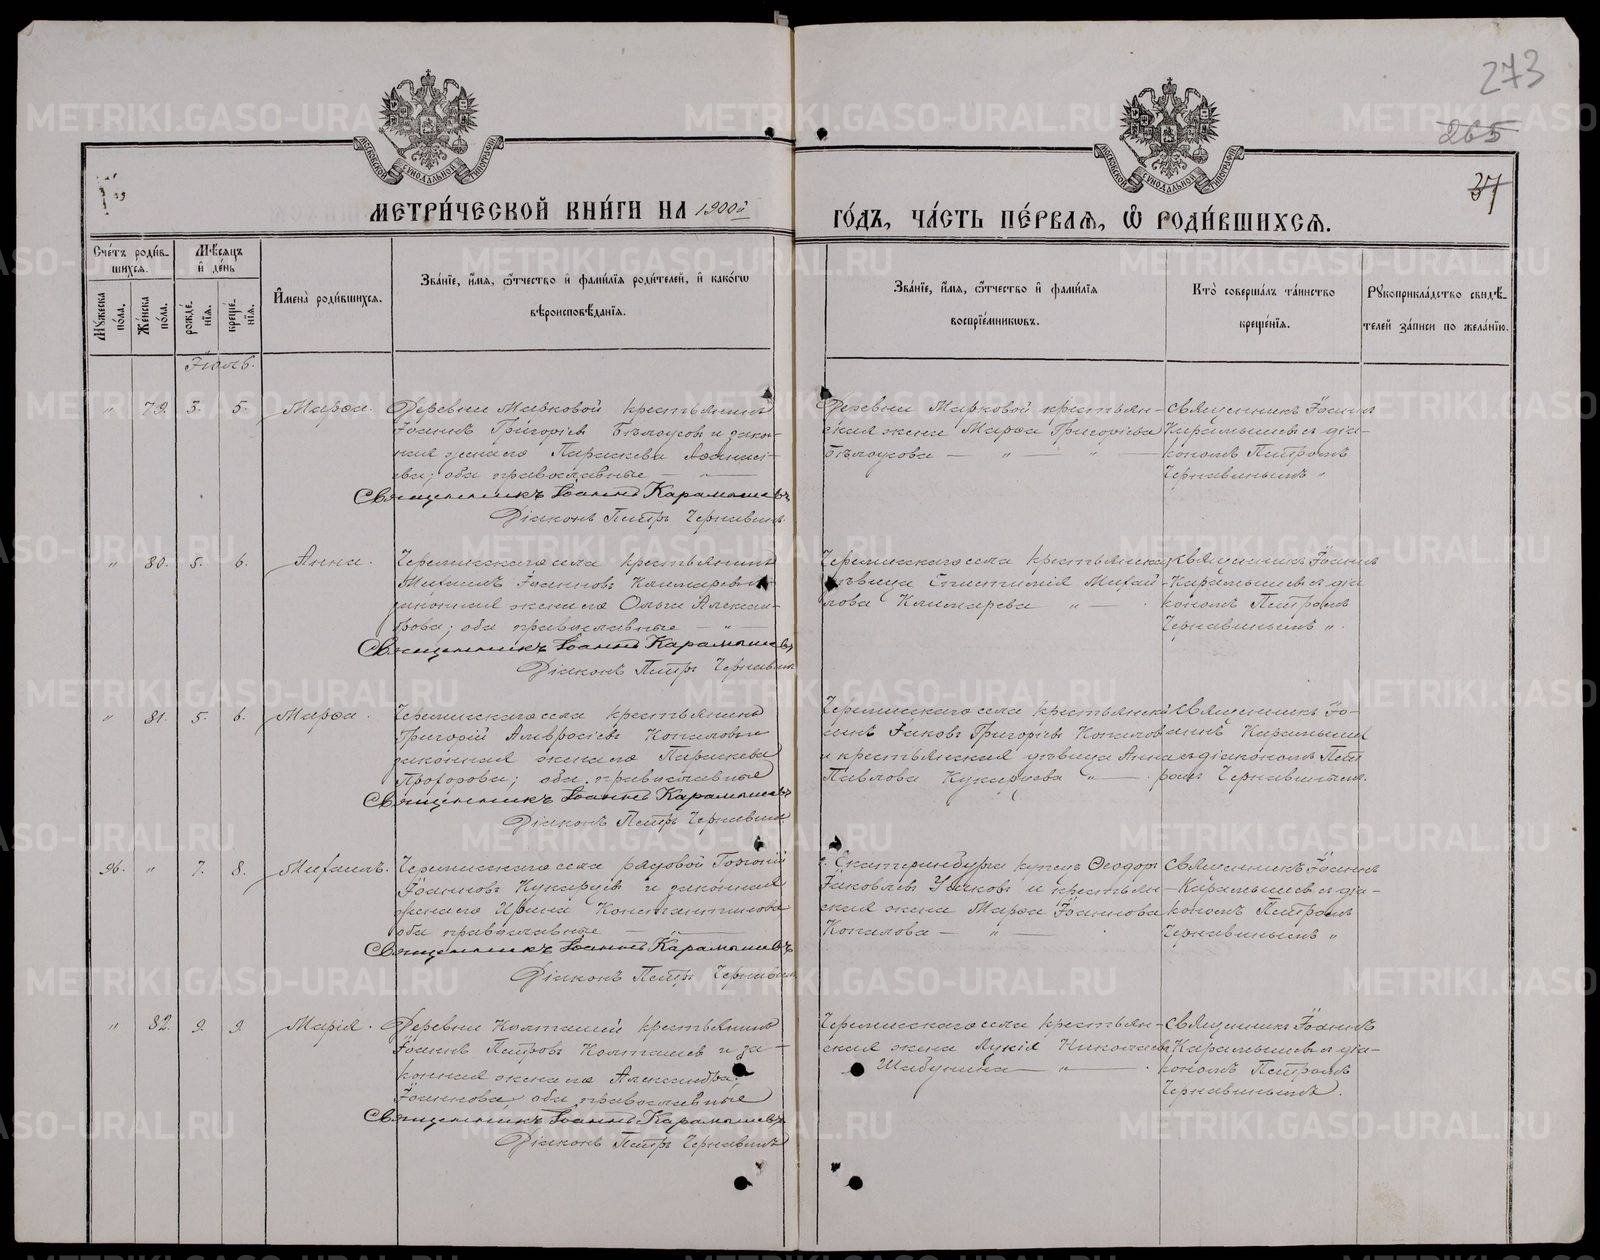 273
265
37
МОСКОВСКОЙ СѴНОДАЛЬНОЙ ТИПОГРАФІИ
МОСКОВСКОЙ СѴНОДАЛЬНОЙ ТИПОГРАФІИ
МЕТРИ́ЧЕСКОЙ КНИ́ГИ НА 1900й
ГО́ДЪ, ЧА́СТЬ ПЕ́РВАЯ, Ѽ РОДИ́ВШИХСЯ.
Сче́тъ роди́в-
шихся.
Мѣ́сяцъ
и҆ де́нь
Мꙋ́жеска
по́ла.
Же́нска
по́ла.
рожде́-
нїя.
креще́-
нїя.
И҆мена̀ роди́вшихся.
Зва́нїе, и҆́мя, ѻ҆́тчество и҆ фами́лїя роди́телей, и҆ како́гѡ
вѣроисповѣ́данїя.
Зва́нїе, и҆́мя, ѻ҆́тчество и҆ фами́лїя
воспрїе́мникѡвъ.
Кто̀ соверша́лъ та́инство
креще́нїя.
Рꙋкоприкла́дство свидѣ́-
телей за́писи по жела́нїю.
Іюль.
" 79. 3. 5. Марѳа.
Деревни Марковой крестьянинъ
Іоаннъ Григоріевъ Бѣлоусовъ и закон-
ная жена его Параскева Аѳанасі-
ева; оба православные — " —
Священникъ Іоаннъ Карамышевъ
Діаконъ Петръ Чернавинъ
Деревни Марковой крестьян-
ская жена Марѳа Григоріева
Бѣлоусова — " — " —
Священникъ Іоаннъ
Карамышевъ съ діа-
кономъ Петромъ
Чернавинымъ "
" 80. 5. 6. Анна.
Черемисскаго села крестьянинъ
Михаилъ Іоанновъ Климаревъ и
законная жена его Ольга Алексан-
дрова; оба православные — " —
Священникъ Іоаннъ Карамышевъ
Діаконъ Петръ Чернавинъ
Черемисскаго села крестьянская
дѣвица Михай-
лова Климарева " — .
Священникъ Іоаннъ
Карамышевъ съ діа-
кономъ Петромъ
Чернавинымъ ".
" 81. 5. 6. Марѳа.
Черемисскаго села крестьянинъ
Григорій Амвросіевъ Копаловъ и
законная жена его Параскева
Прохорова; оба православные
Священникъ Іоаннъ Карамышевъ
Діаконъ Петръ Чернавинъ
Черемисскаго села крестьянскій
сынъ Іаковъ Григоріевъ Копаловъ
и крестьянская дѣвица Анна
Павлова Кукарцева " — .
Священникъ Іо-
аннъ Карамышевъ
съ діакономъ Пет-
ромъ Чернавинымъ.
96. " 7. 8. Михаилъ.
Черемисскаго села рядовой Горгоній
Іоанновъ Кукарцевъ и законная
жена его Ирина Константинова
оба православные — " —
Священникъ Іоаннъ Карамышевъ
Діаконъ Петръ Чернавинъ
г. Екатеринбурга купецъ Ѳеодоръ
Іаковлевъ Ушковъ и крестьян-
ская жена Марѳа Іоаннова
Копалова — " — .
Священникъ Іоаннъ
Карамышевъ съ діа-
кономъ Петромъ
Чернавинымъ "
" 82. 9. 9. Марія.
Деревни Колташей крестьянинъ
Іоаннъ Петровъ Колташевъ и за-
конная жена его Александра
Іоаннова оба православные
Священникъ Іоаннъ Карамышевъ
Діаконъ Петръ Чернавинъ
Черемисскаго села крестьян-
ская жена Лукія Николаева
Шабунина — " — .
Священникъ Іоаннъ
Карамышевъ съ діа-
кономъ Петромъ
Чернавинымъ.
METRIKI.GASO-URAL.RU